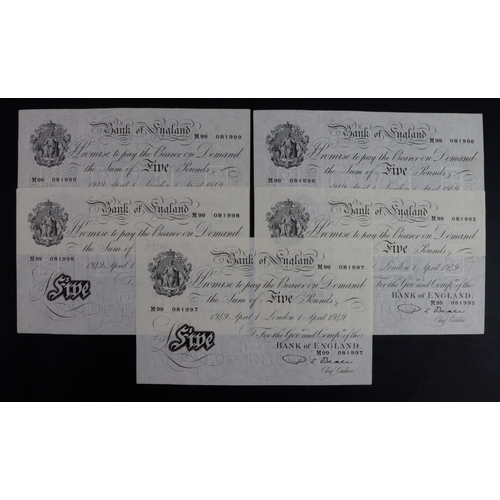 Bank of England
M99 081999
Promise to pay the Bearer on Demand
M99 081999 the Sum of Five Pounds
1949 April 1 London 1 April 1949
Bank of England
M99 081996
Promise to pay the Bearer on Demand
M99 081996 the Sum of Five Pounds
Bank of England
M99 081998
Promise to pay the Bearer on Demand
the Sum of Five
M99 081998 1949 April 1
Five
Bank of England
M99 081995
to pay the Bearer on Demand
Five Pounds
London 1 April 1949
For the Govr. and Compa. of the
BANK of ENGLAND.
M99 081995
Chief Cashier
Bank of England
M99 081997
Promise to pay the Bearer on Demand
M99 081997 the Sum of Five Pounds
1949 April 1 London 1 April 1949
For the Govr. and Compa. of the
BANK of ENGLAND.
Five M99 081997
P S Beale
Chief Cashier